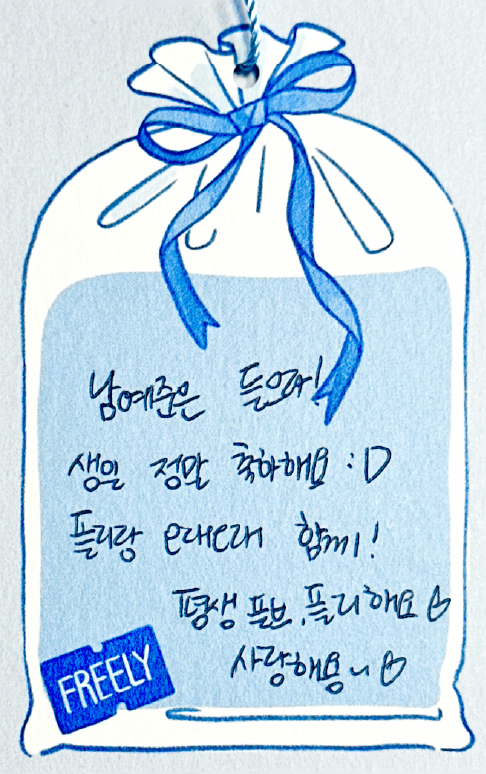 남예준은 들어라!
생일 정말 축하해요 :D
플리랑 오래오래 함께!
평생 플브, 플리해요 ♡
사랑해용~ ♡
FREELY